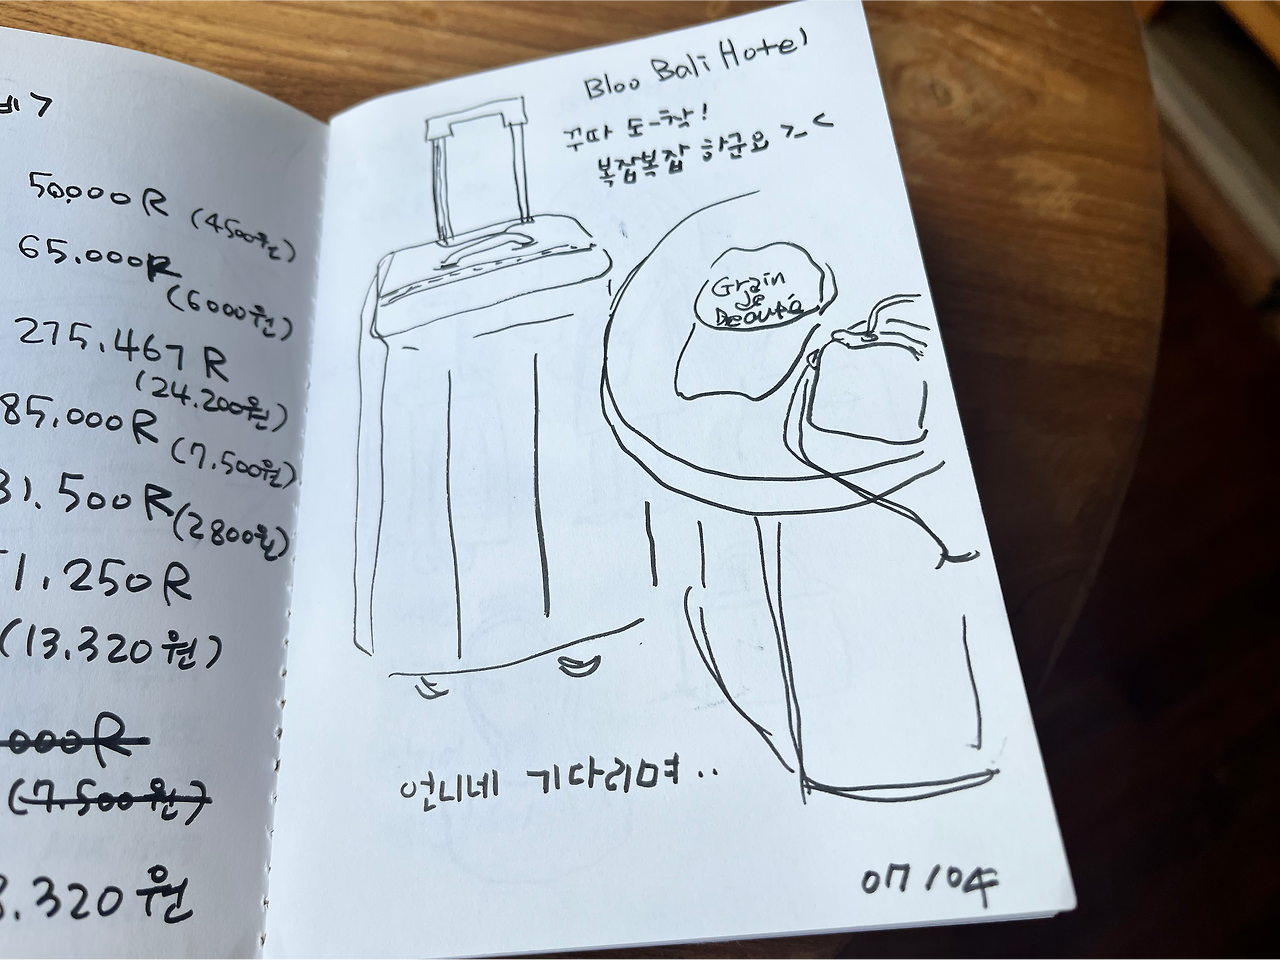 50.000R (4500원)
65.000R
(6000원)
275.467R
(24.200원)
85.000R (7.500원)
31.500R (2800원)
1.250R
(13.320원)
000R
(7.500원)
3.320원
Bloo Bali Hotel
꾸따 도-착!
복잡복잡 하군요 >_<
Grain
de
Beauté
언니네 기다리며..
07/04